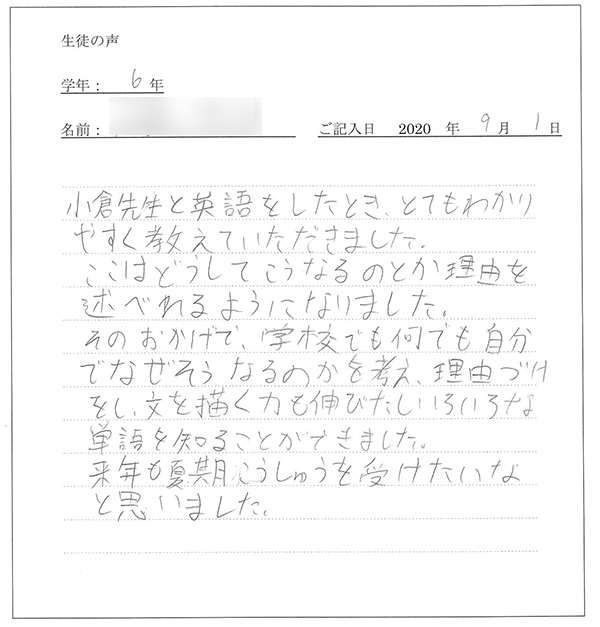 生徒の声
学年： 6 年
名前：
ご記入日 2020 年 9 月 1 日
小倉先生と英語をしたとき、とてもわかり
やすく教えていただきました。
ここはどうしてこうなるのとか理由を
述べれるようになりました。
そのおかげで、学校でも何でも自分
でなぜそうなるのかを考え、理由づけ
をし、文を描く力も伸びたしいろいろな
単語を知ることができました。
来年も夏期こうしゅうを受けたいな
と思いました。